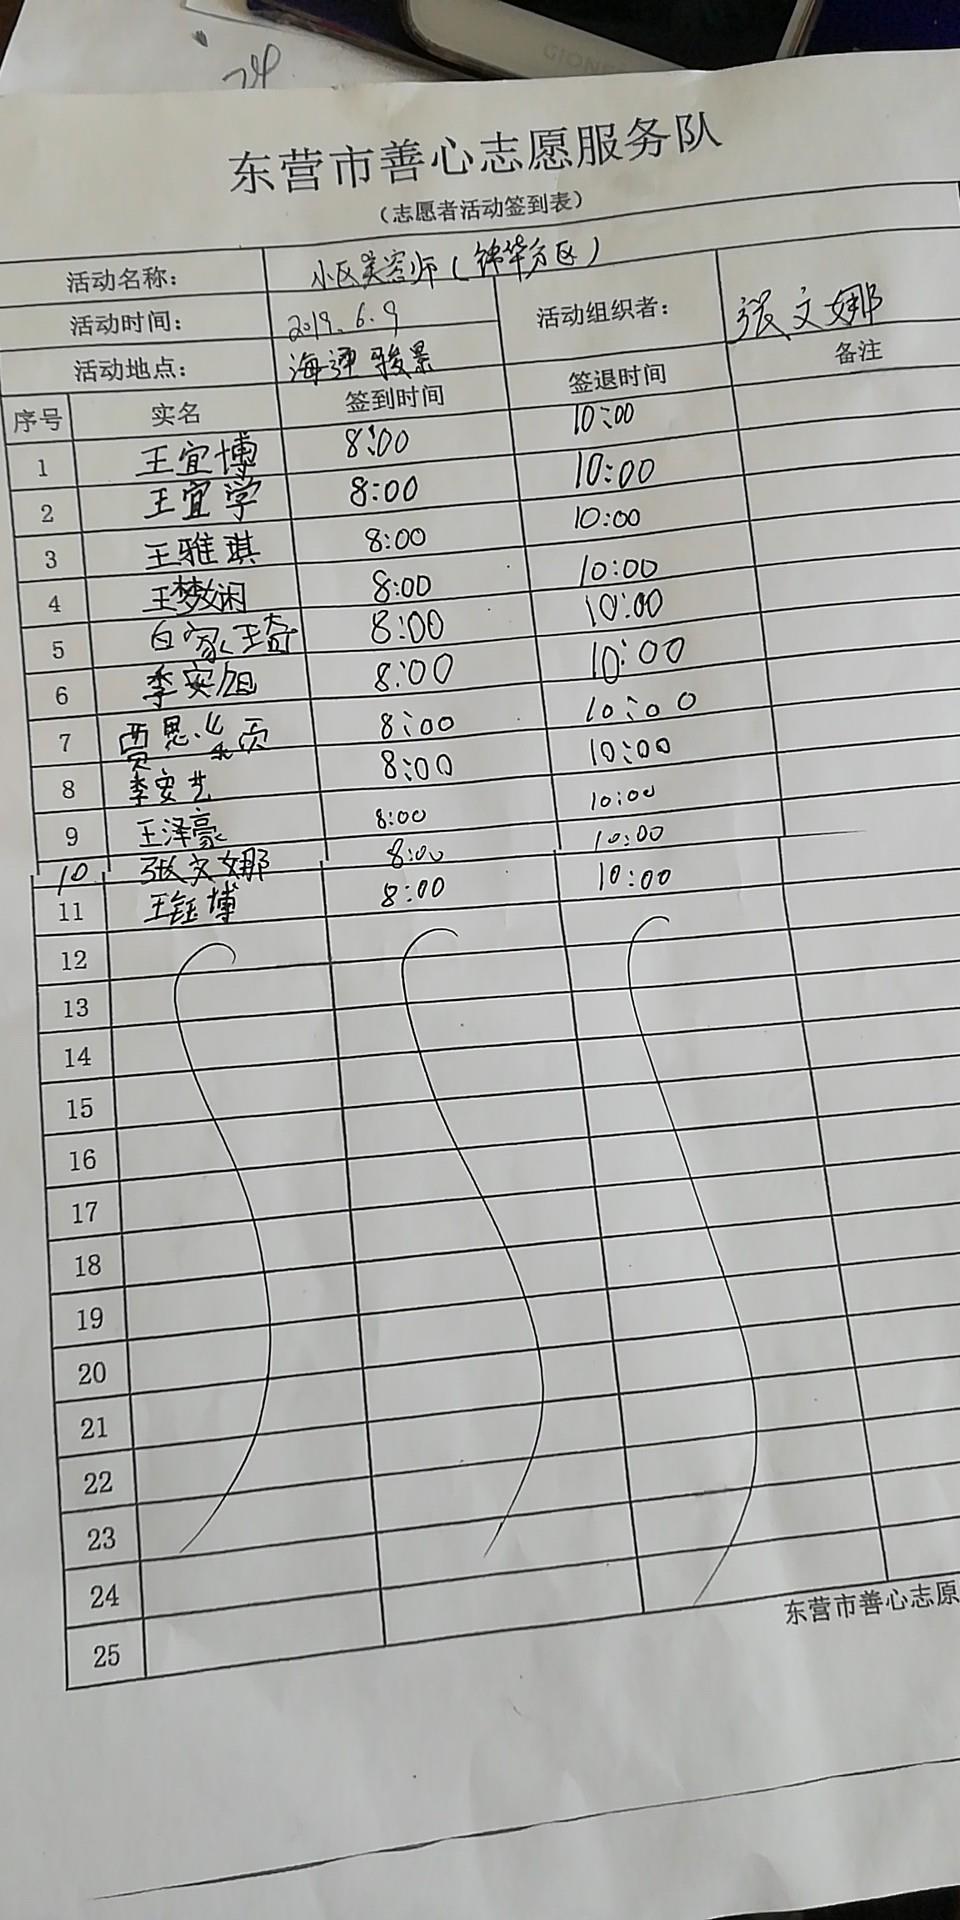 GIONEE
东营市善心志愿服务队
（志愿者活动签到表）
活动名称： 小区美容师（锦华分区）
活动时间： 2019.6.9 活动组织者： 张文娜
活动地点： 海通骏景
序号 实名 签到时间 签退时间 备注
1 王宜博 8:00 10:00
2 王宜学 8:00 10:00
3 王雅琪 8:00 10:00
4 王梦娴 8:00 10:00
5 白家琦 8:00 10:00
6 李安旭 8:00 10:00
7 贾思颍 8:00 10:00
8 李安艺 8:00 10:00
9 王泽豪 8:00 10:00
10 张文娜 8:00 10:00
11 王钰博 8:00 10:00
12
13
14
15
16
17
18
19
20
21
22
23
24
25
东营市善心志愿